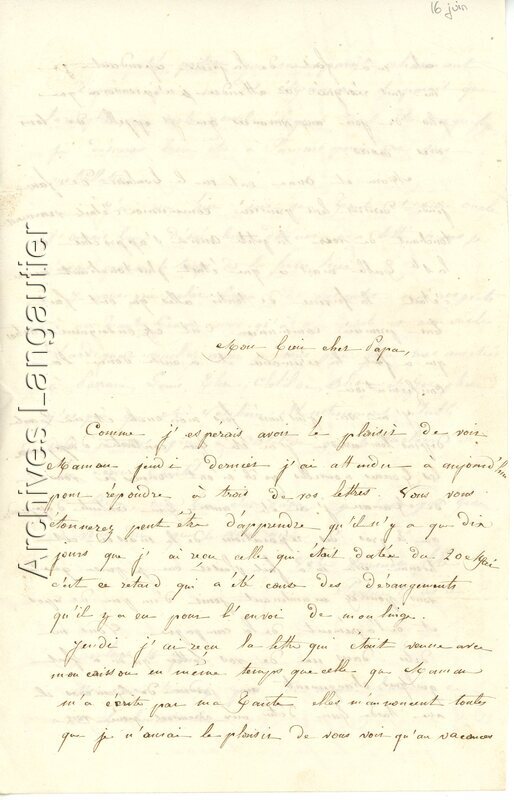 16 juin
Mon bien cher Papa,
Comme j'espérais avoir le plaisir de voir
Maman jeudi dernier j'ai attendu à aujourd'hui
pour répondre à trois de vos lettres. Vous vous
étonnerez peut être d'apprendre qu'il n'y a que dix
jours que j'ai reçu celle qui était datée du 20 Mai
c'est ce retard qui a été cause des dérangements
qu'il y a eu pour l'envoi de mon linge.
Jeudi j'ai reçu la lettre qui était venue avec
mon caisson en même temps que celle que Maman
m'a écrite par ma Tante elles m'annoncent toutes
que je n'aurai le plaisir de vous voir qu'au vacances
Archives Langautier